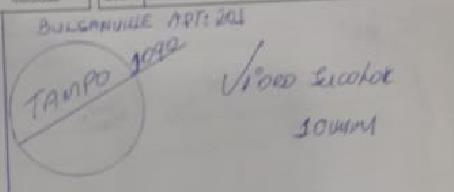 BULGANVILLE APT: 201
TAMPO 1092
VIDRO INCOLOR
10MM